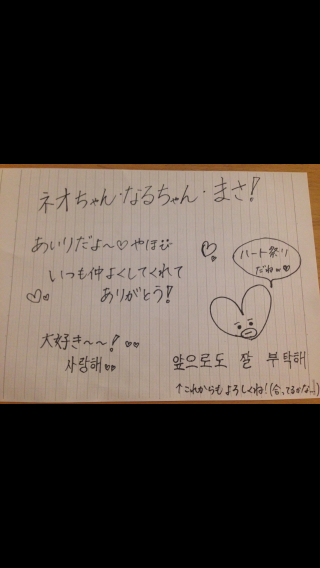 ネオちゃん・なるちゃん・まさ!
あいりだよ〜♡やほ
いつも仲よくしてくれて
ありがとう!
ハート祭り
だねw♡
大好き〜〜!♡♡
사랑해♡♡
앞으로도 잘 부탁해
↑これからもよろしくね!(合ってるかな…!)